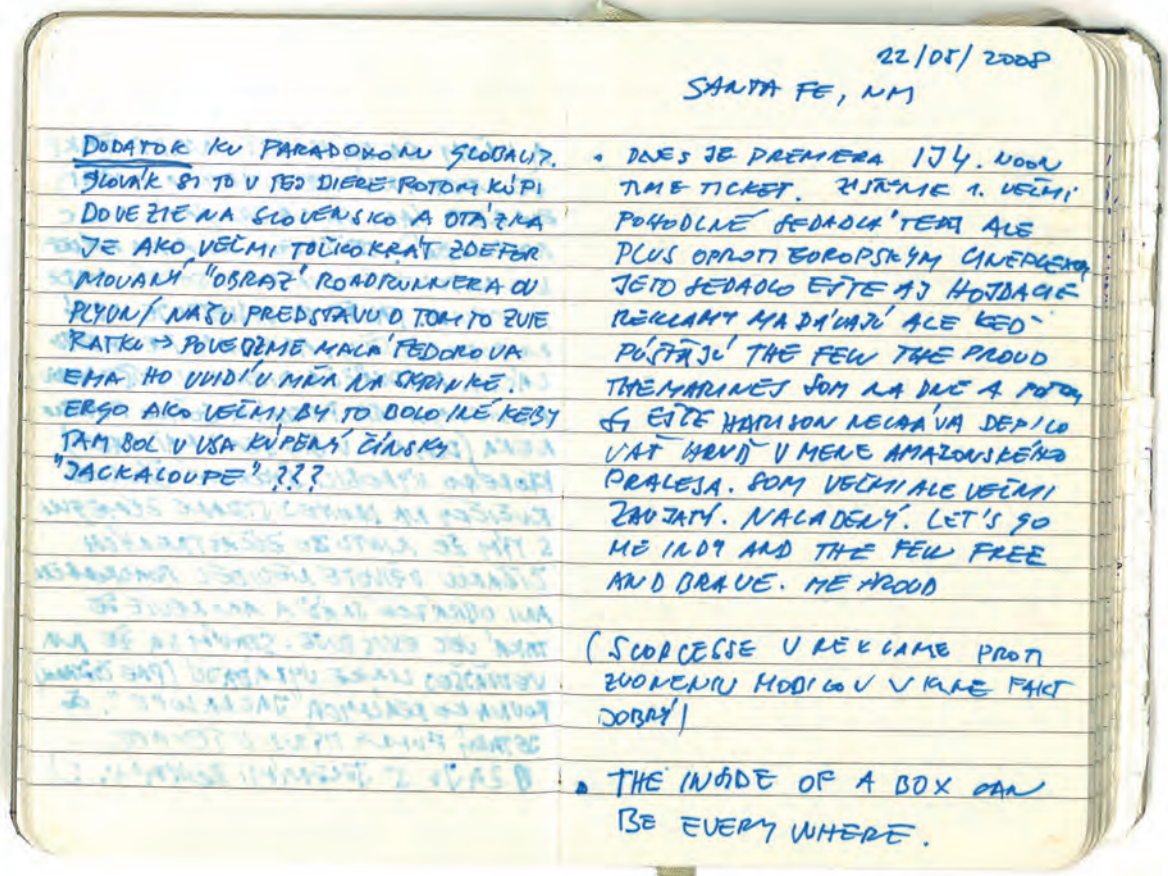 DODATOK KU PARADOXOMU GLOBALIZ.
SLOVÁK SI TO V TEJ DIERE POTOM KÚPI
DOVEZIE NA SLOVENSKO A OTÁZKA
JE AKO VEĽMI TOĽKOKRÁT ZDEFOR
MOVANÝ "OBRAZ" ROADRUNNERA OV
PLYVNÍ NAŠU PREDSTAVU O TOMTO ZVIE
RATKU → POVEDZME MALÁ FEDOROVA
EMA HO UVIDÍ U MŇA NA SKRINKE.
ERGO AKO VEĽMI BY TO BOLO INÉ KEBY
TAM BOL V USA KÚPENÝ ČÍNSKY
"JACKALOUPE" ???
22/05/2008
SANTA FE, NM
• DNES JE PREMIERA IJ4. NOON
TIME TICKET. ZISTENIE 1. VEĽMI
POHODLNÉ SEDADLÁ TEDA ALE
PLUS OPROTI EUROPSKÝM CINEPLEXOM
JETO SEDADLO EŠTE AJ HOJDACIE
REKLAMY MA DÁVAJÚ ALE KEĎ
PÚŠŤAJÚ THE FEW THE PROUD
THE MARINES SOM NA DNE A POTOM
SI EŠTE HARISON NECHÁVA DEPILO
VAŤ HRUĎ V MENE AMAZONSKÉHO
PRALESA. SOM VEĽMI ALE VEĽMI
ZAUJATÝ. NALADENÝ. LET'S GO
ME INDY AND THE FEW FREE
AND BRAVE. ME PROUD
(SCORCESSE V REKLAME PROTI
ZVONENIU MOBILOV V KINE FAKT
DOBRÝ)
• THE INSIDE OF A BOX CAN
BE EVERY WHERE.